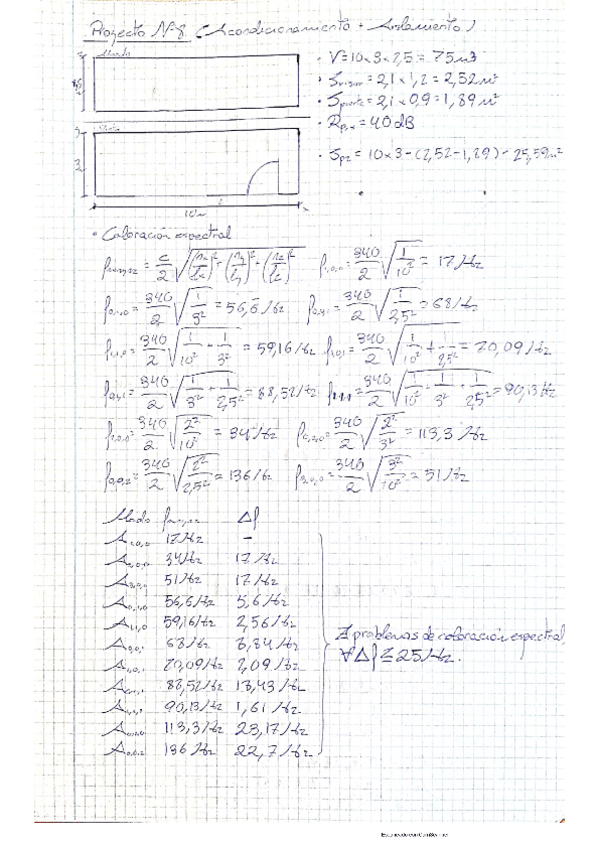 Proyecto Nº8 (Acondicionamiento + Aislamiento)
· V=10x3x2,5= 75m3
= 2,1x1,2 = 2,52m²
· Spuerta = 2,1x0,9 = 1,89m²
= 40dB
· Sp2 = 10x3-(2,52-1,89) = 25,59m²
3
10m
· Coloración espectral
= c/2 √((nx/lx)²+(ny/ly)²+(nz/lz)²) f1,0,0 = 340/2 √(1/10²) = 17Hz
f0,1,0 = 340/2 √(1/3²) = 56,6Hz f0,0,1 = 340/2 √(1/2,5²) = 68Hz
f1,1,0 = 340/2 √(1/10² + 1/3²) = 59,16Hz f1,0,1 = 340/2 √(1/10² + 1/2,5²) = 70,09Hz
f0,1,1 = 340/2 √(1/3² + 1/2,5²) = 88,52Hz f1,1,1 = 340/2 √(1/10² + 1/3² + 1/2,5²) = 90,13Hz
f2,0,0 = 340/2 √(2²/10²) = 34Hz f0,2,0 = 340/2 √(2²/3²) = 113,3Hz
f0,0,2 = 340/2 √(2²/2,5²) = 136Hz f3,0,0 = 340/2 √(3²/10²) = 51Hz
Modo Δf
A1,0,0 17Hz -
A2,0,0 34Hz 17Hz
A3,0,0 51Hz 17Hz
A0,1,0 56,6Hz 5,6Hz
A1,1,0 59,16Hz 2,56Hz
A0,0,1 68Hz 8,84Hz
A1,0,1 70,09Hz 2,09Hz
A0,1,1 88,52Hz 18,43Hz
A1,1,1 90,13Hz 1,61Hz
A0,2,0 113,3Hz 23,17Hz
A0,0,2 136Hz 22,7Hz
∄ problemas de coloración espectral
∀Δf ≤ 25Hz.